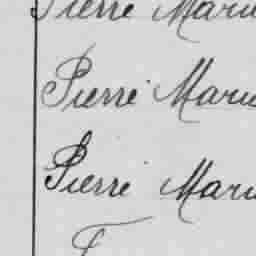 Pierre Marie
Pierre Marie
Pierre Marie
F